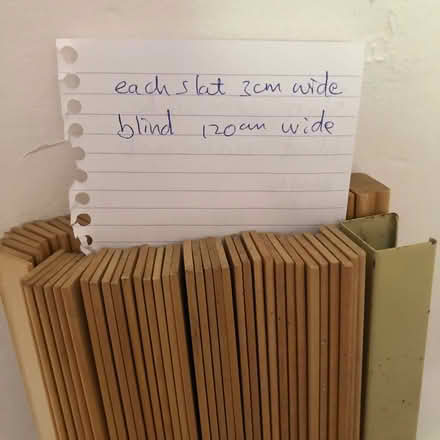 each slat 3cm wide
blind 120cm wide